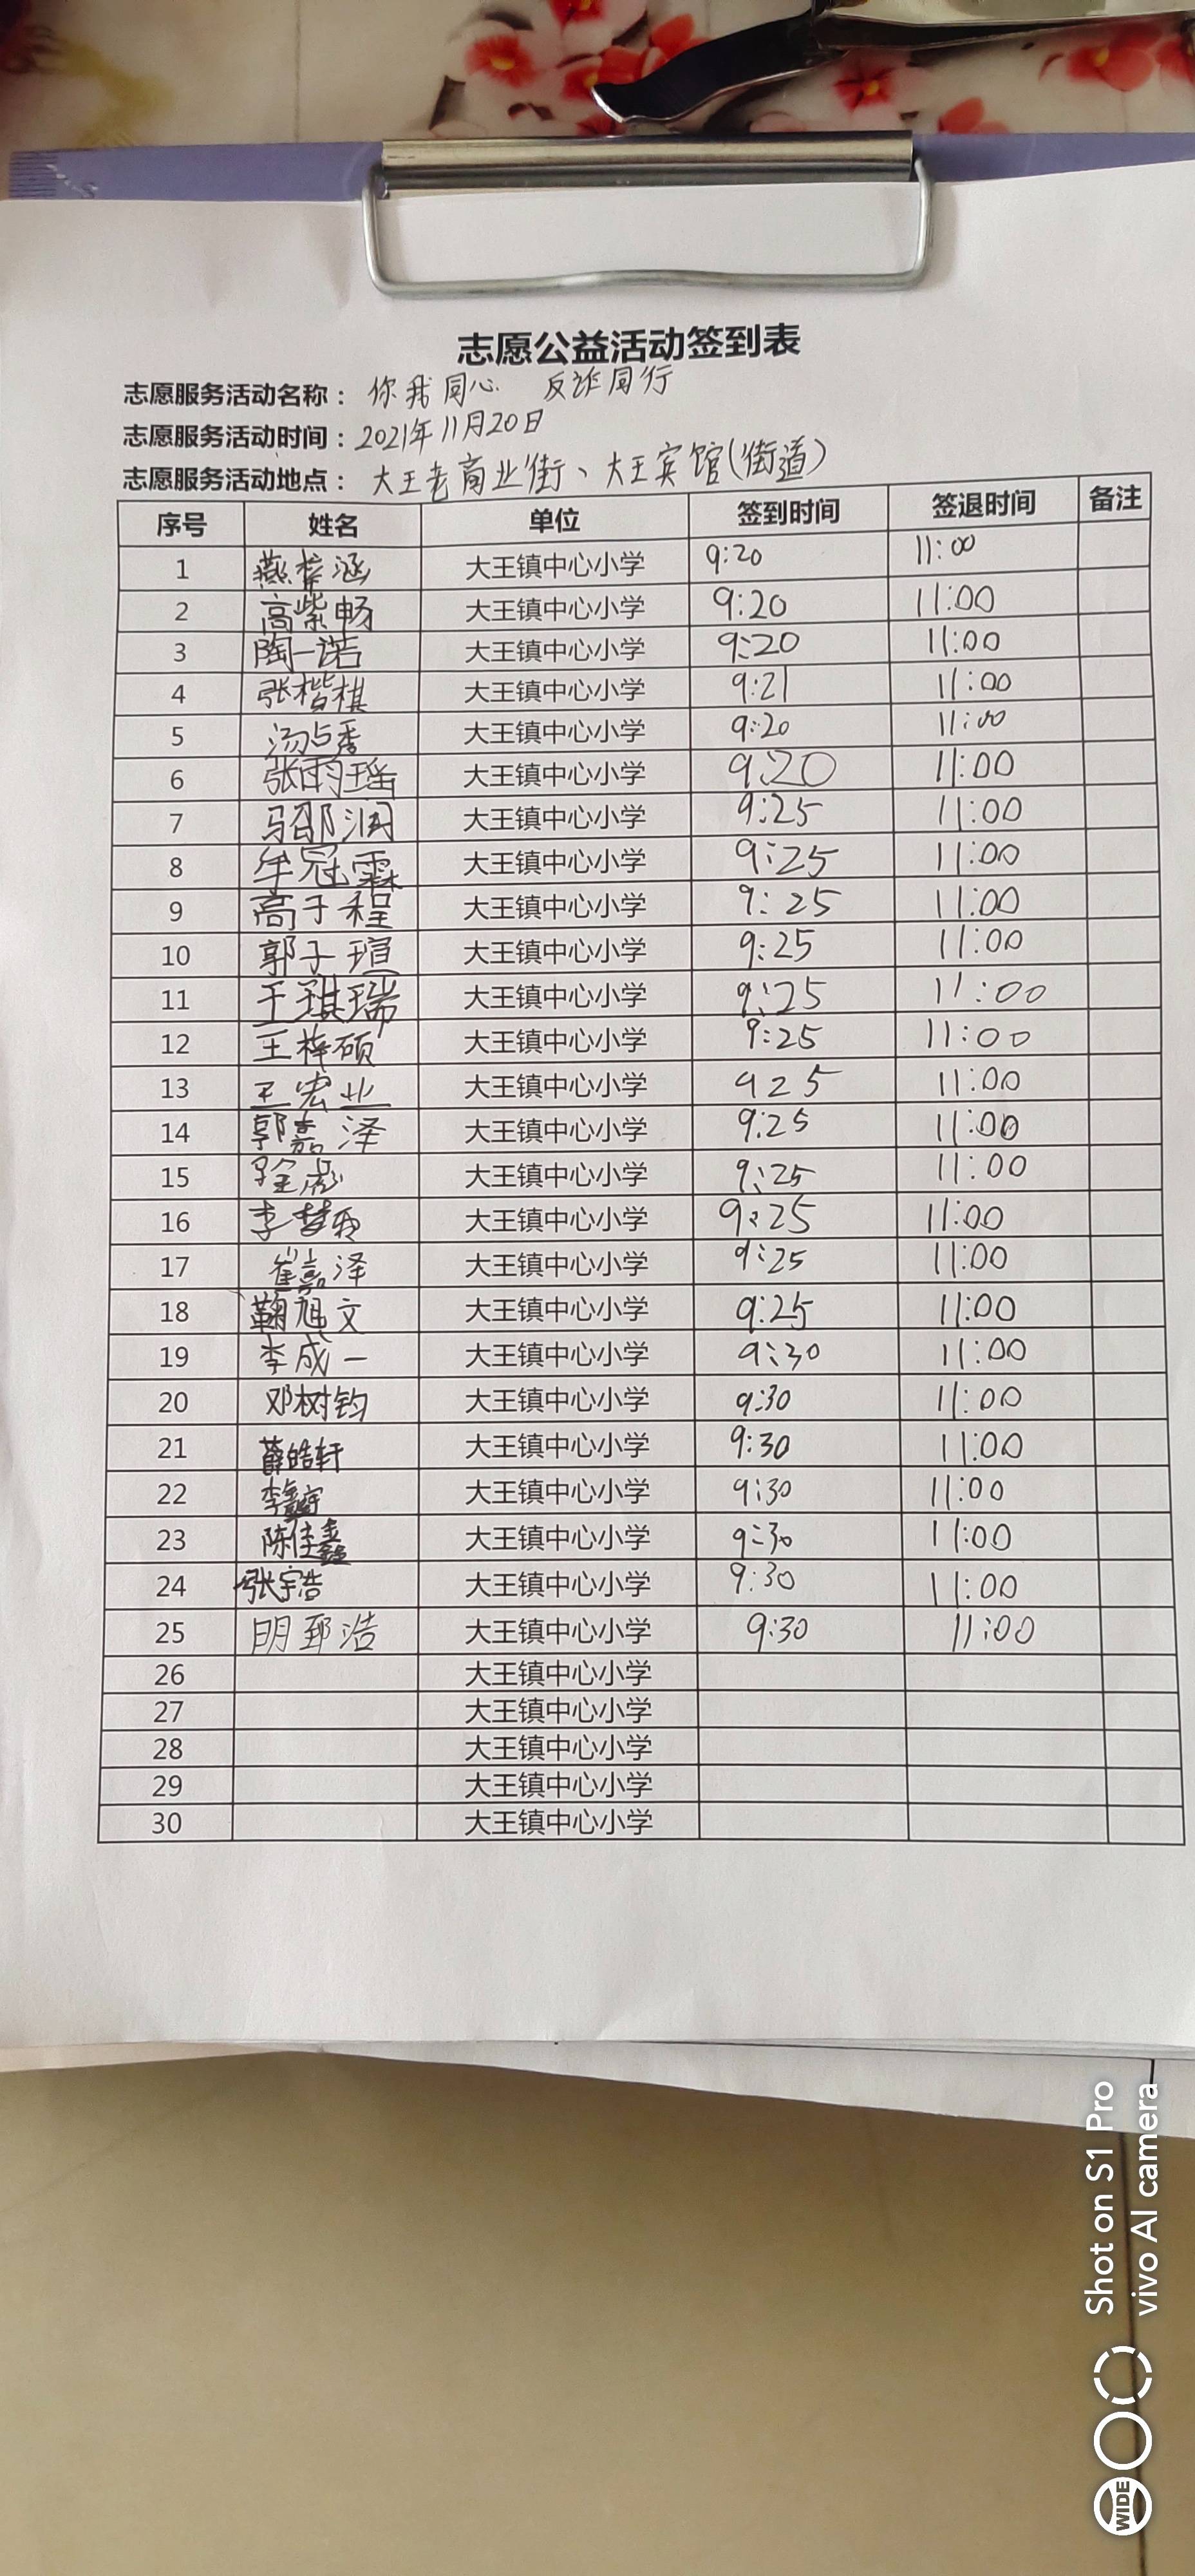 志愿公益活动签到表
志愿服务活动名称： 你我同心 反诈同行
志愿服务活动时间：2021年11月20日
志愿服务活动地点： 大王老商业街、大王宾馆(街道)
序号 姓名 单位 签到时间 签退时间 备注
1 燕梓涵 大王镇中心小学 9:20 11:00
2 高紫畅 大王镇中心小学 9:20 11:00
3 陶一诺 大王镇中心小学 9:20 11:00
4 张楷棋 大王镇中心小学 9:21 11:00
5 大王镇中心小学 9:20 11:00
6 张雨瑶 大王镇中心小学 9:20 11:00
7 马邵润 大王镇中心小学 9:25 11:00
8 牟冠霖 大王镇中心小学 9:25 11:00
9 高子程 大王镇中心小学 9:25 11:00
10 郭子瑄 大王镇中心小学 9:25 11:00
11 王琪瑞 大王镇中心小学 9:25 11:00
12 王梓硕 大王镇中心小学 9:25 11:00
13 王宏业 大王镇中心小学 925 11:00
14 郭嘉泽 大王镇中心小学 9:25 11:00
15 大王镇中心小学 9:25 11:00
16 大王镇中心小学 9:25 11:00
17 崔嘉泽 大王镇中心小学 9:25 11:00
18 鞠旭文 大王镇中心小学 9:25 11:00
19 李成一 大王镇中心小学 9:30 11:00
20 邓树钧 大王镇中心小学 9:30 11:00
21 薛皓轩 大王镇中心小学 9:30 11:00
22 大王镇中心小学 9:30 11:00
23 陈佳鑫 大王镇中心小学 9:30 11:00
24 张宇浩 大王镇中心小学 9:30 11:00
25 明郅浩 大王镇中心小学 9:30 11:00
26 大王镇中心小学
27 大王镇中心小学
28 大王镇中心小学
29 大王镇中心小学
30 大王镇中心小学
Shot on S1 Pro
vivo AI camera
WIDE